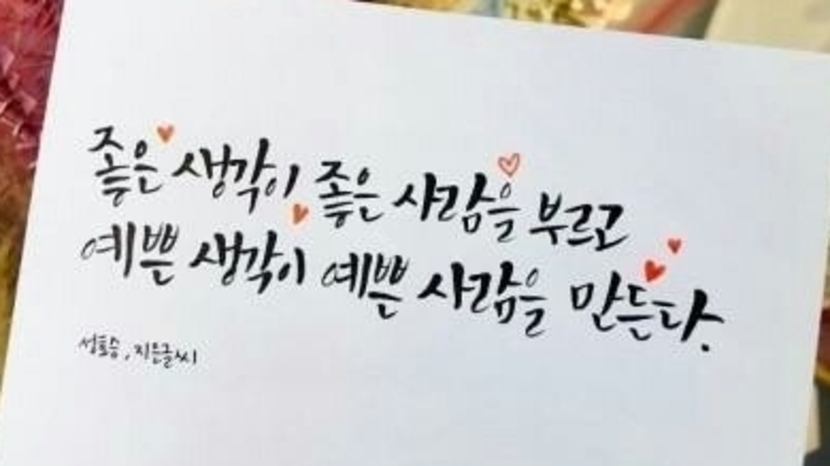 좋은 생각이 좋은 사람을 부르고
예쁜 생각이 예쁜 사람을 만든다.
지은글씨